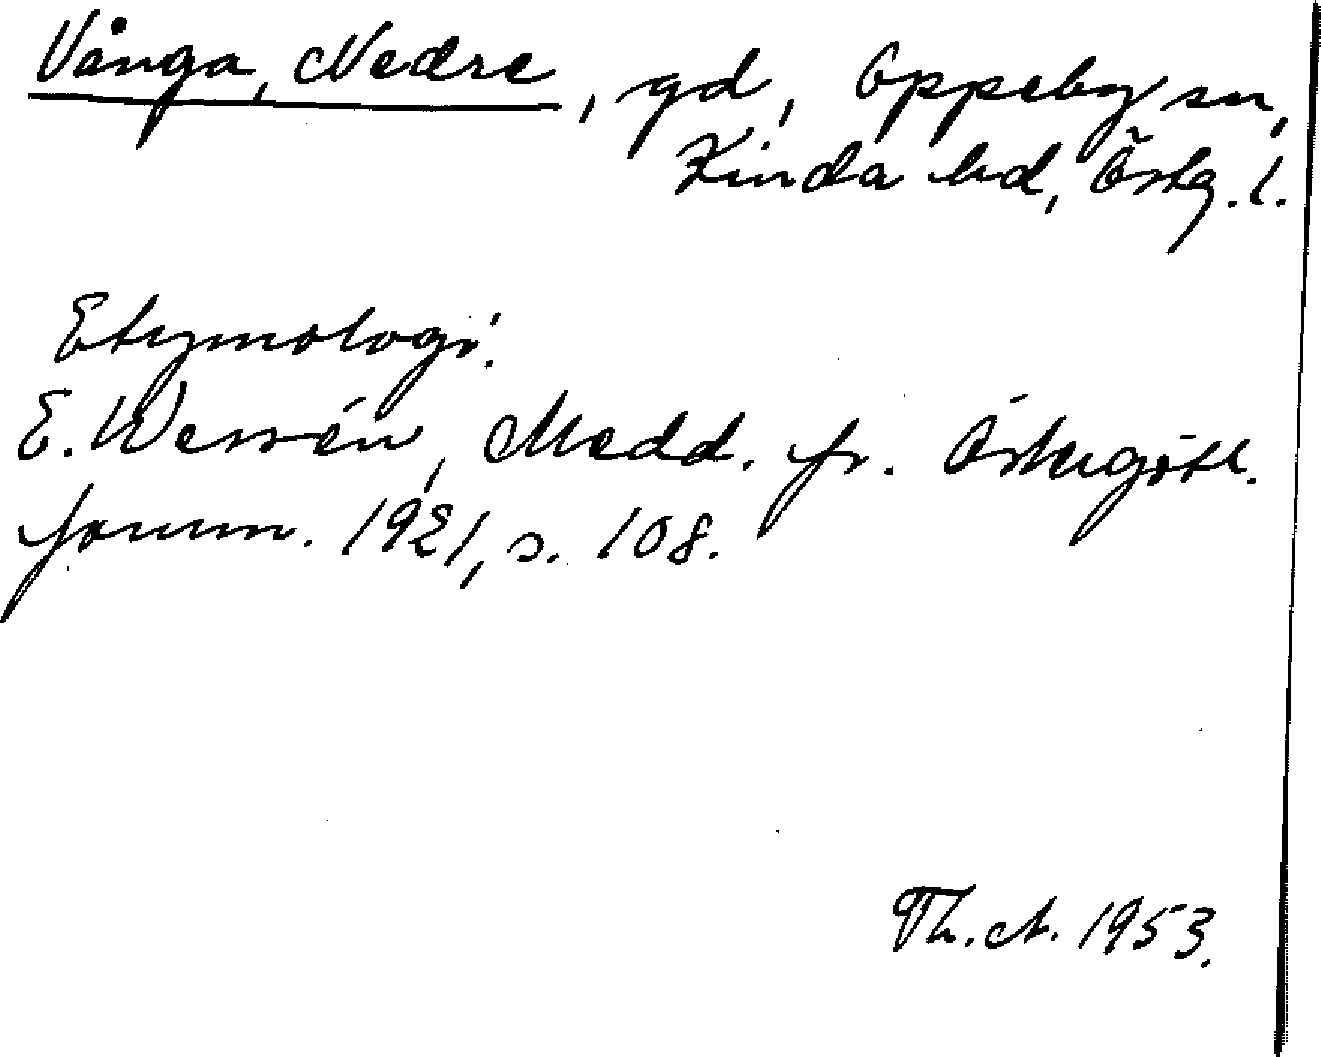 Vånga, Nedre, gd, Oppeby sn,
Kinda hd, Östg. l.
Etymologi:
E. Wessén, Medd. fr. Östergötl.
fornm. 1921, s. 108.
Th. A. 1953.